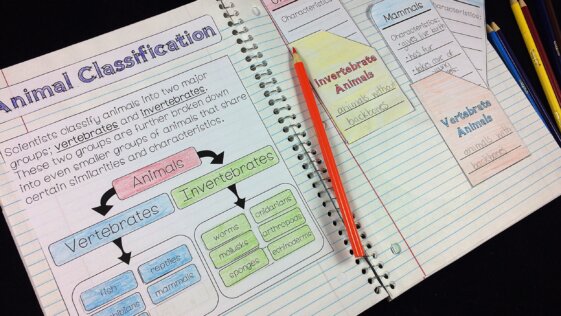 Animal Classification
Scientists classify animals into two major
groups; vertebrates and invertebrates.
These two groups are further broken down
into even smaller groups of animals that share
certain similarities and characteristics.
Animals
Vertebrates
Invertebrates
fish
reptiles
mammals
worms
mollusks
sponges
cnidarians
arthropods
echinoderms
Characteristics:
Invertebrate
Animals
animals without
backbones
Mammals
Characteristics:
Vertebrate
Animals
animals with
backbones